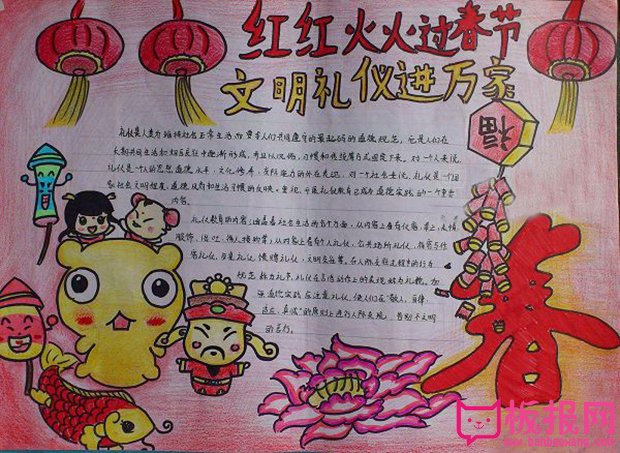 红红火火过春节
文明礼仪进万家
福
礼仪是人类为维持社会正常生活而要求人们共同遵守的最起码的道德规范，它是人们在
长期共同生活和相互交往中逐渐形成，并且以风俗、习惯和传统等方式固定下来。对一个人来说，
礼仪是一个人的思想道德水平、文化修养、交际能力的外在表现，对一个社会来说，礼仪是一个国
家社会文明程度、道德风尚和生活习惯的反映。重视、开展礼仪教育已成为道德实践的一个重要
内容。
礼仪教育的内容涵盖着社会生活的各个方面。从内容上看有仪容、举止、表情、
服饰、谈吐、待人接物等；从对象上看有个人礼仪、公共场所礼仪、待客与作
客礼仪、餐桌礼仪、馈赠礼仪、文明交往等。在人际交往过程中的行为
规范称为礼节，礼仪在言语动作上的表现称为礼貌。加
强道德实践应注意礼仪，使人们在“敬人、自律、
适度、真诚”的原则上进行人际交往，告别不文明
的言行。
春
板报网
www.banbaowang.com